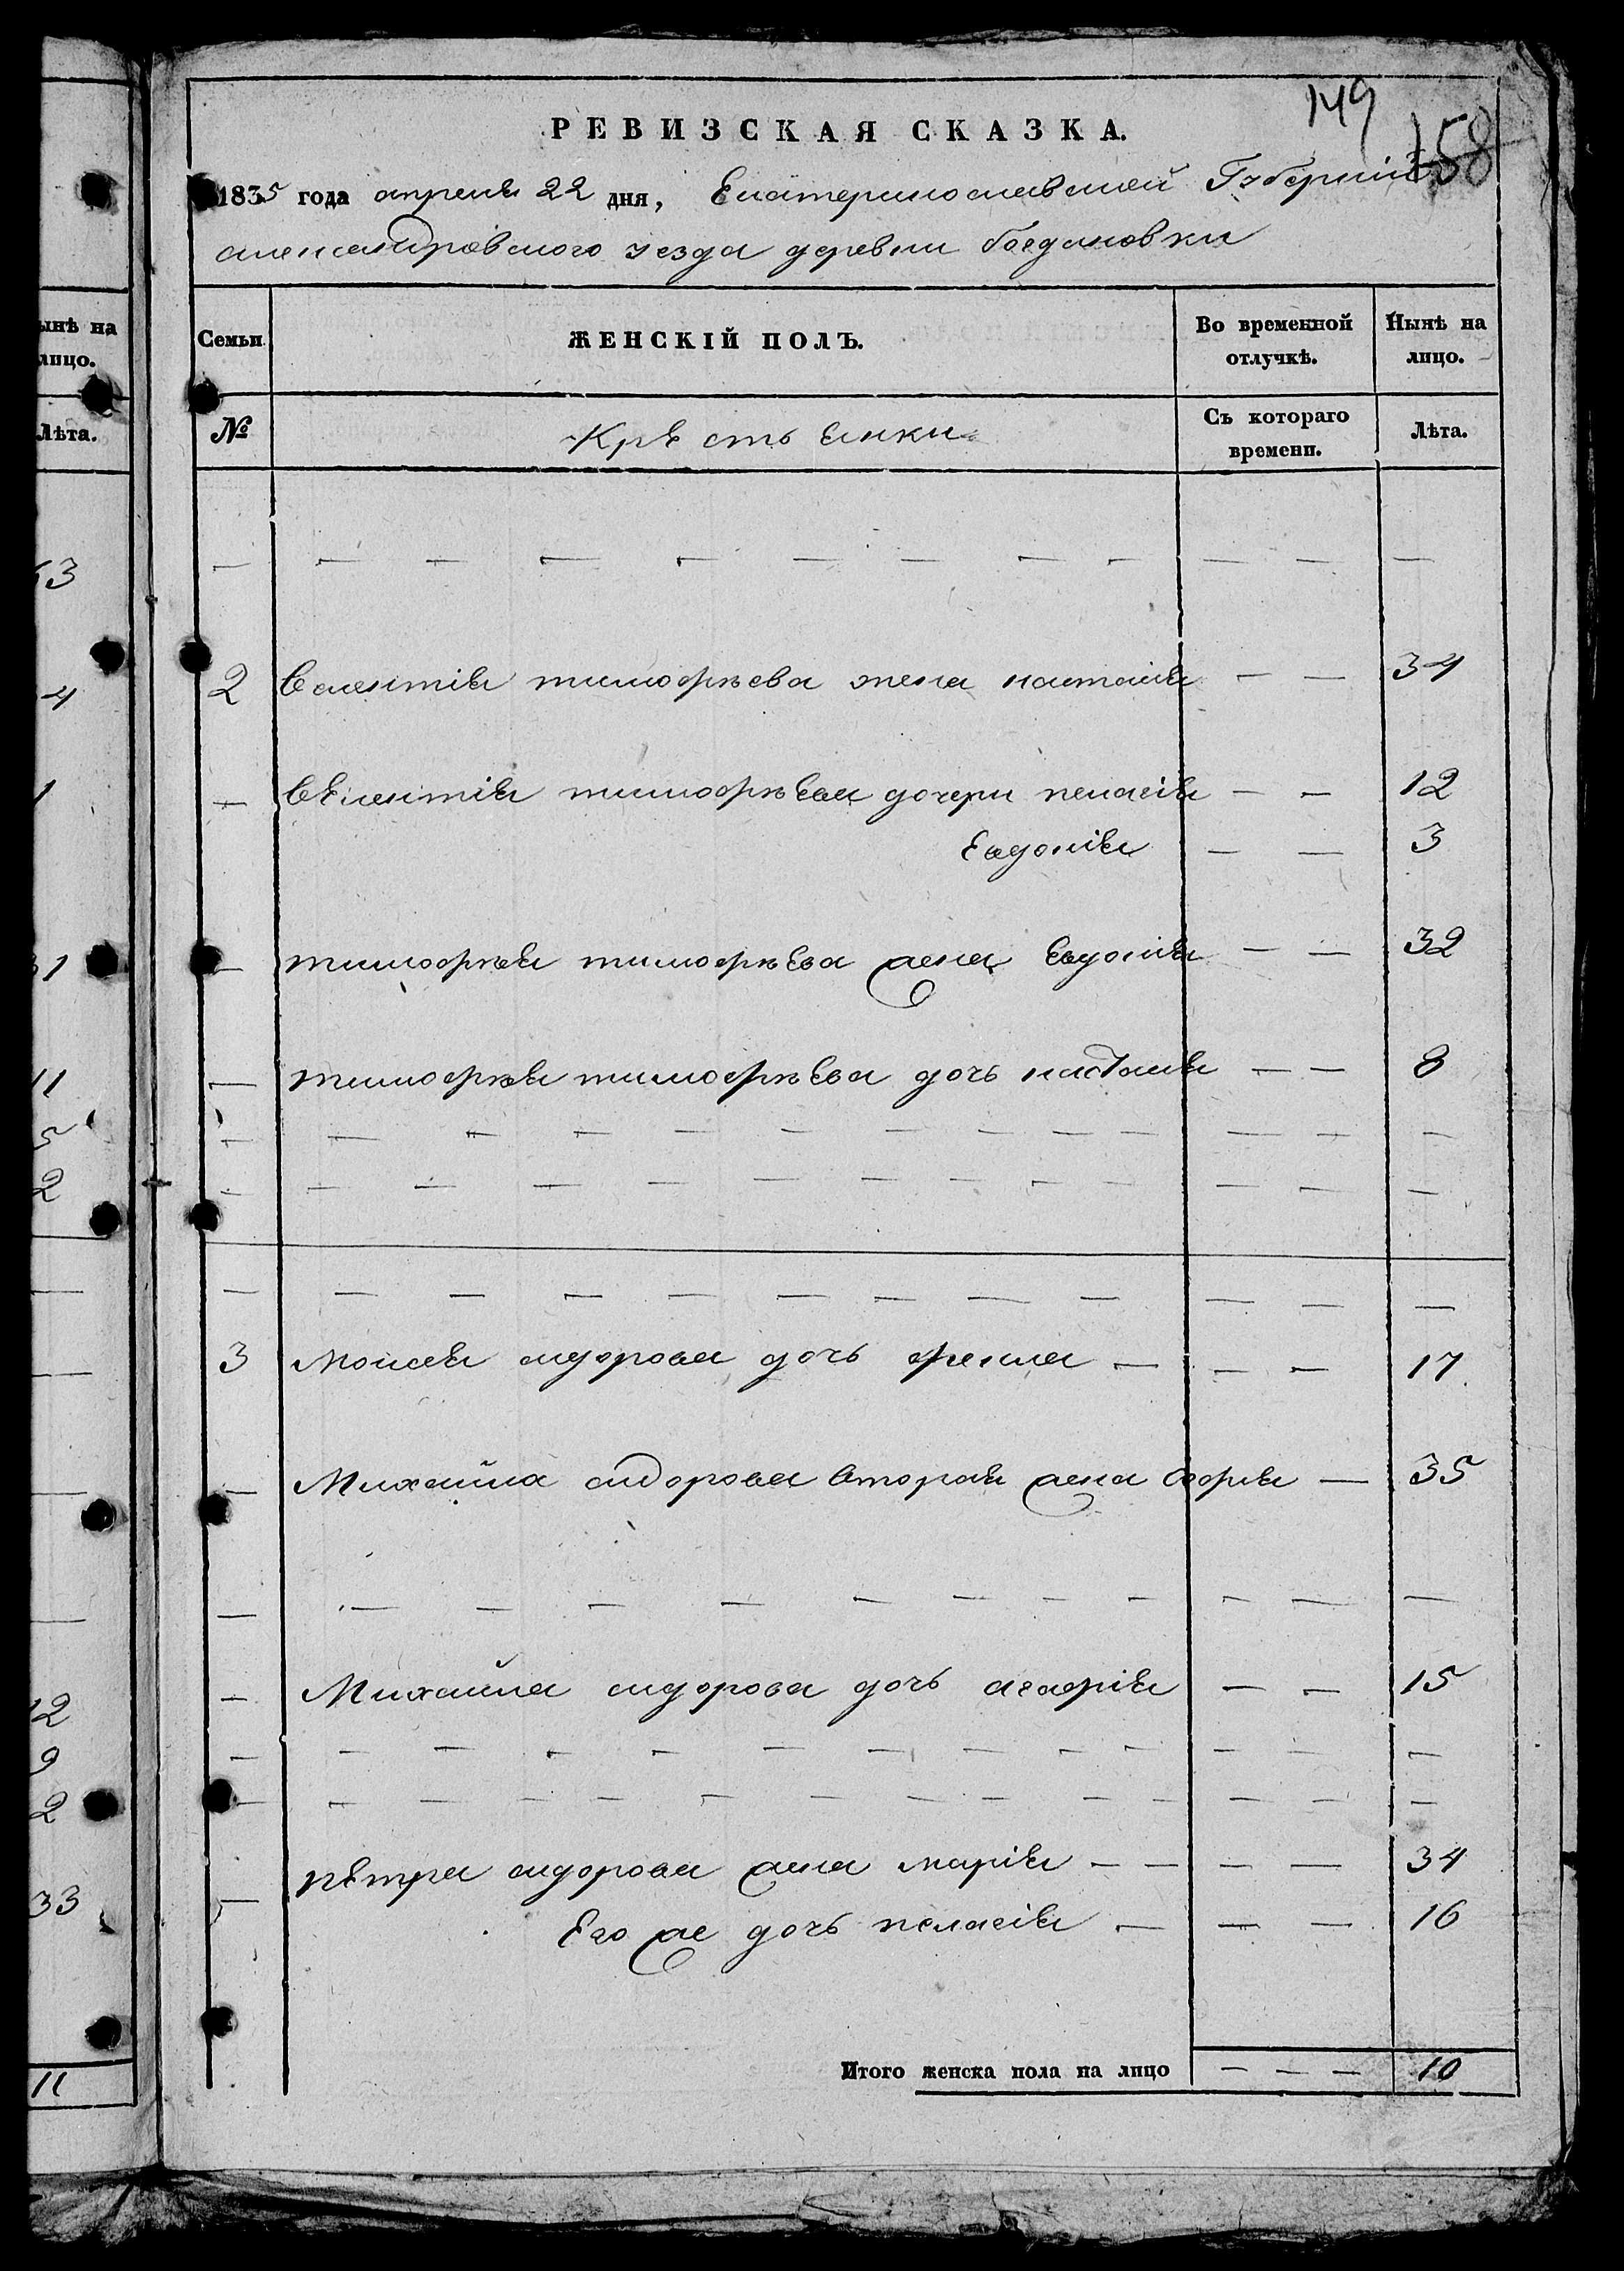 149
158
РЕВИЗСКАЯ СКАЗКА.
1835 года апреля 22 дня, Екатеринославской Губернии
александровского уезда деревни богдановки
Семьи
ЖЕНСКІЙ ПОЛЪ.
Во временной отлучкѣ.
Нынѣ на лицо.
№
Крестьянки
Съ котораго времени.
Лѣта.
— — — — — — — — — — — —
2 тимофѣева жена настасія — — 34
— тимофѣева дочери пелагія — — 12
Евдокія — — 3
— тимофѣя тимофѣева жена Евдокія — — 32
— тимофѣя тимофѣева дочь настасія — — 8
— — — — — — — — — — — — —
— — — — — — — — — — — — —
— — — — — — — — — — — —
3 Моисея сидорова дочь фекла — — — 17
— Михайла сидорова вторая жена — 35
— — — — — — — — — — — —
— Михайла сидорова дочь агафія — — 15
— — — — — — — — — — — — —
— — — — — — — — — — — — —
— петра сидорова жена марія — — — — 34
Его же дочь пелагія — — — 16
Итого женска пола на лицо — — — 10
ынѣ на
лицо.
Лѣта.
63
4
1
31
11
5
2
12
9
2
33
11